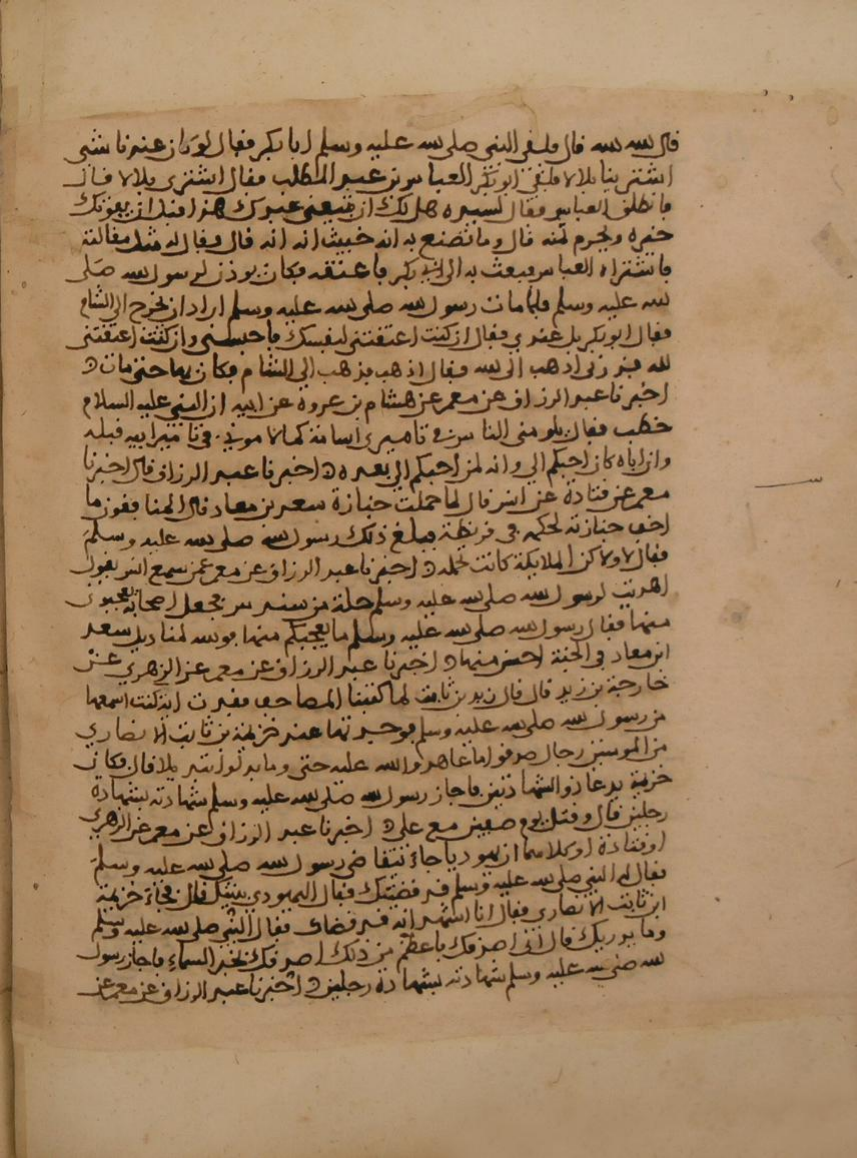 قال لله لله قال فلقي النبي صلى الله عليه وسلم ابا بكر فقال لو كان عندنا شى
اشترينا بلالا فلقي ابو بكر العباس بن عبد المطلب فقال اشتري بلالا قال
فانطلق العباس فقال لسيده هل لك ان تبيعني عبدك هذا قبل ان يفوتك
خيره وتحرم ثمنه قال وما تصنع به انه خبيث انه انه قال فقال له مثل مقالته
فاشتراه العباس فبعث به الى ابي بكر فاعتقه فكان يوذن لرسول الله صلى
الله عليه وسلم فلما مات رسول الله صلى الله عليه وسلم اراد ان يخرج الى الشام
فقال ابو بكر بل عندي فقال ان كنت اعتقتني لنفسك فاحبسني وان كنت اعتقتني
لله فذرني اذهب الى الله فقال اذهب فذهب الى الشام فكان بها حتى مات
اخبرنا عبد الرزاق عن معمر عن هشام بن عروة عن ابيه ان النبي عليه السلام
خطب فقال يلومني الناس في تاميري اسامة كما لاموني في تامير ابيه قبله
وان اباه كان احبكم الي وانه لمن احبكم الي بعده اخبرنا عبد الرزاق قال اخبرنا
معمر عن قتادة عن انس قال لما حملت جنازة سعد بن معاذ قال المنافقون ما
اخف جنازته لحكمه في قريظة فبلغ ذلك رسول الله صلى الله عليه وسلم
فقال لا ولكن الملايكة كانت تحمله اخبرنا عبد الرزاق عن معمر عمن سمع انس يقول
اهديت لرسول الله صلى الله عليه وسلم حلة من سندس فجعل اصحابه يعجبون
منها فقال رسول الله صلى الله عليه وسلم ما يعجبكم منها فوالله لمناديل سعد
ابن معاذ في الجنة احسن منها اخبرنا عبد الرزاق عن معمر عن الزهري عن
خارجة بن زيد قال قال زيد بن ثابت لما كتبنا المصاحف فقدت اية كنت اسمعها
من رسول الله صلى الله عليه وسلم فوجدتها عند خزيمة بن ثابت الانصاري
من المومنين رجال صدقوا ما عاهدوا الله عليه حتى وما بدلوا تبديلا قال فكان
خزيمة يدعا ذو الشهادتين فاجاز رسول الله صلى الله عليه وسلم شهادته بشهادة
رجلين قال وقتل يوم صفين مع علي اخبرنا عبد الرزاق عن معمر عن الزهري
او قتادة او كلاهما ان يهوديا جاء يتقاضى رسول الله صلى الله عليه وسلم
فقال له النبي صلى الله عليه وسلم قد قضيتك فقال اليهودي بينتك قال فجاء خزيمة
ابن ثابت الانصاري فقال انا اشهد انه قد قضاك فقال النبي صلى الله عليه وسلم
وما يدريك قال اني اصدقك باعظم من ذلك اصدقك بخبر السماء فاجاز رسول
الله صلى الله عليه وسلم شهادته بشهادة رجلين اخبرنا عبد الرزاق عن معمر عن